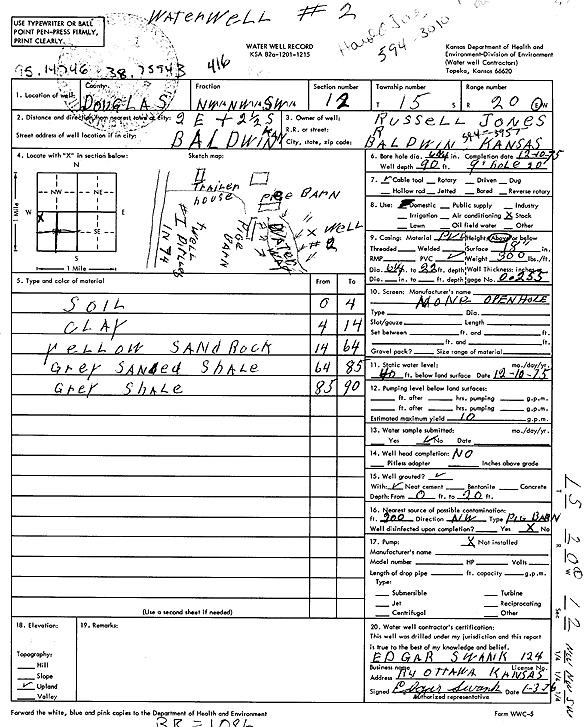 WATERWELL # 2
USE TYPEWRITER OR BALL
POINT PEN-PRESS FIRMLY,
PRINT CLEARLY.
WATER WELL RECORD
KSA 82a-1201-1215
594-3010
Kansas Department of Health and
Environment-Division of Environment
(Water well Contractors)
Topeka, Kansas 66620
95.14746 -38.75943 416
1. Location of well: County: DOUGLAS Fraction NW NW SW Section number 12 Township number T 15 S Range number R 20 E W
2. Distance and direction from nearest town or city: 2 E + 2 2/S
Street address of well location if in city: BALDWIN
3. Owner of well: RUSSELL JONES
R.R. or street: R
City, state, zip code: BALDWIN KANSAS
594-3957
4. Locate with "X" in section below:
Sketch map:
N
NW NE
W X E
SW SE
S
1 Mile
1 Mile
TRAILER HOUSE
PIG BARN
PIG BARN
WATERWAY
WELL # 2
WELL # 1 DRILLED IN 74
5. Type and color of material From To
SOIL 0 4
CLAY 4 14
YELLOW SAND ROCK 14 64
GREY SANDED SHALE 64 85
GREY SHALE 85 90
(Use a second sheet if needed)
6. Bore hole dia. 6 1/4 in. Completion date 12-10-75
Well depth 90 ft. 9" hole 20'
7. ✓ Cable tool Rotary Driven Dug
Hollow rod Jetted Bored Reverse rotary
8. Use: Domestic Public supply Industry
Irrigation Air conditioning X Stock
Lawn Oil field water Other
9. Casing: Material PVC Height: Above or below
Threaded Welded Surface 18 in.
RMP PVC ✓ Weight 300 lbs./ft.
Dia. 6 1/4 in. to 22 ft. depth Wall Thickness: inches or
Dia. in. to ft. depth gage No. 0.255
10. Screen: Manufacturer's name
NONE OPEN HOLE
Type Dia.
Slot/gauze Length
Set between ft. and ft.
ft. and ft.
Gravel pack? Size range of material
11. Static water level: mo./day/yr.
40 ft. below land surface Date 12-10-75
12. Pumping level below land surfaces:
ft. after hrs. pumping g.p.m.
ft. after hrs. pumping g.p.m.
Estimated maximum yield 10 g.p.m.
13. Water sample submitted: mo./day/yr.
Yes ✓ No Date
14. Well head completion: NO
Pitless adapter Inches above grade
15. Well grouted? ✓
With: ✓ Neat cement Bentonite Concrete
Depth: From 0 ft. to 20 ft.
16. Nearest source of possible contamination:
ft. 200 Direction NW Type PIG BARN
Well disinfected upon completion? Yes X No
17. Pump: X Not installed
Manufacturer's name
Model number HP Volts
Length of drop pipe ft. capacity g.p.m.
Type:
Submersible Turbine
Jet Reciprocating
Centrifugal Other
18. Elevation:
Topography:
Hill
Slope
✓ Upland
Valley
19. Remarks:
20. Water well contractor's certification:
This well was drilled under my jurisdiction and this report
is true to the best of my knowledge and belief.
EDGAR SWANK 124
Business name License No.
Address R4 OTTAWA KANSAS
Signed Edgar Swank Date 1-3-76
Authorized representative
T 15 R 20 E W Sec 12 1/4 1/4 1/4 NW NW SW
Forward the white, blue and pink copies to the Department of Health and Environment
Form WWC-5